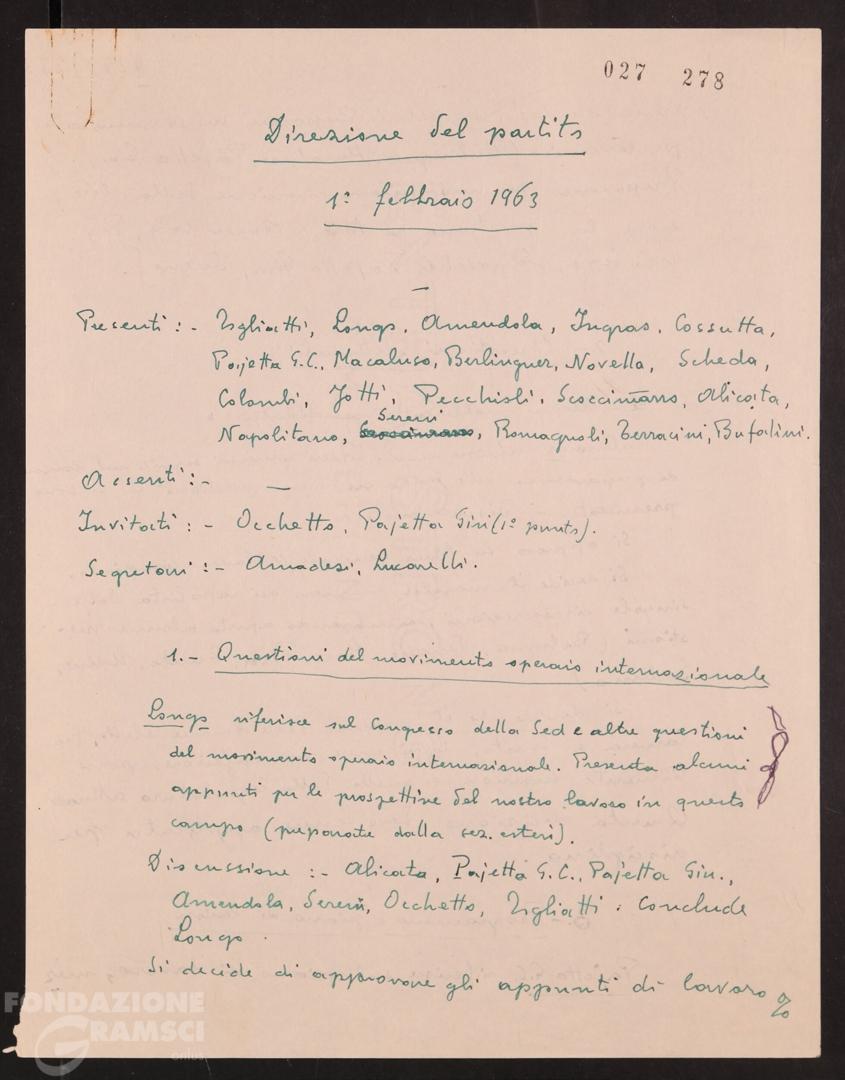 027 278
Direzione del partito
1º febbraio 1963
Presenti :- Togliatti, Longo, Amendola, Ingrao, Cossutta,
Pajetta G.C., Macaluso, Berlinguer, Novella, Scheda,
Colombi, Jotti, Pecchioli, Scoccimarro, Alicata,
Sereni
Napolitano, Scoccimarro, Romagnoli, Terracini, Bufalini.
Assenti :- —
Invitati :- Occhetto, Pajetta Giu (1º punto).
Segretari :- Amadesi, Lucarelli.
1.- Questioni del movimento operaio internazionale
Longo riferisce sul Congresso della Sed e altre questioni
del movimento operaio internazionale. Presenta alcuni
appunti per le prospettive del nostro lavoro in questo
campo (preparate dalla sez. esteri).
Discussione :- Alicata, Pajetta G.C., Pajetta Giu.,
Amendola, Sereni, Occhetto, Togliatti. Conclude
Longo.
Si decide di approvare gli appunti di lavoro
FONDAZIONE
GRAMSCI
onlus